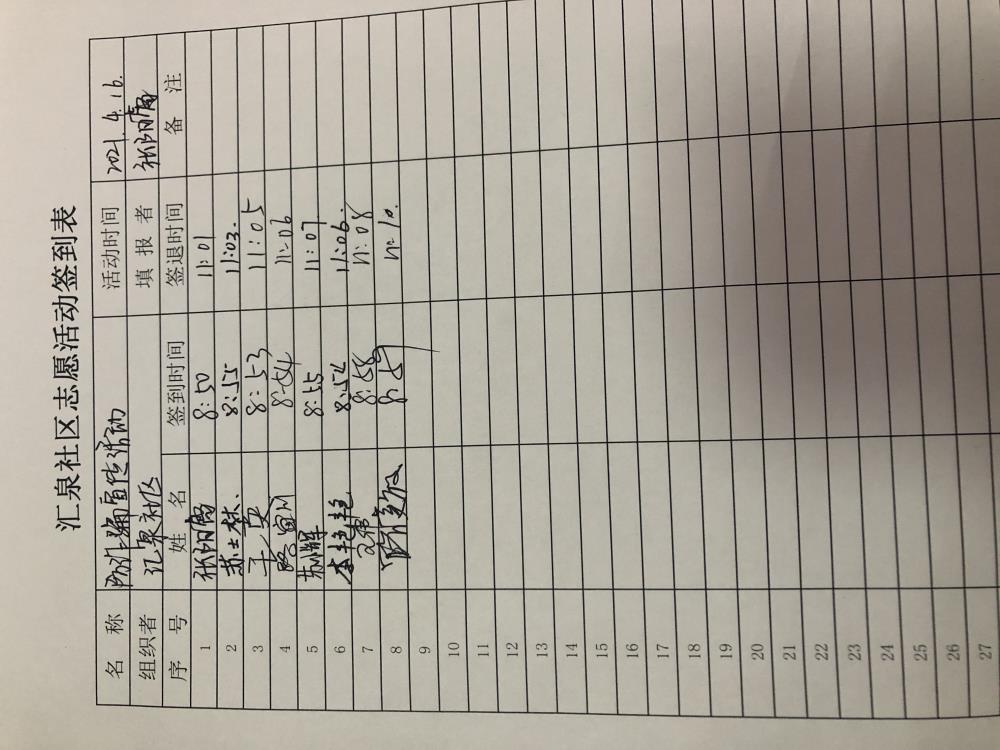 汇泉社区志愿活动签到表
名 称 防诈骗宣传活动 活动时间 2021.4.16.
组织者 汇泉社区 填 报 者 张阳阳
序 号 姓 名 签到时间 签退时间 备 注
1 张阳阳 8:50 11:01
2 苏士林 8:55 11:03.
3 8:53 11:05
4 8:54 11:06
5 8:55 11:07
6 李艳艳 8:54 11:06.
7 8:58 11:08
8 8:59 11:10.
9
10
11
12
13
14
15
16
17
18
19
20
21
22
23
24
25
26
27